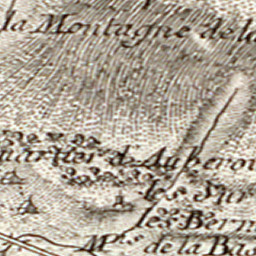 la Montagne de la
uartier de
les Sur
les Berm
M.rs de la Bas